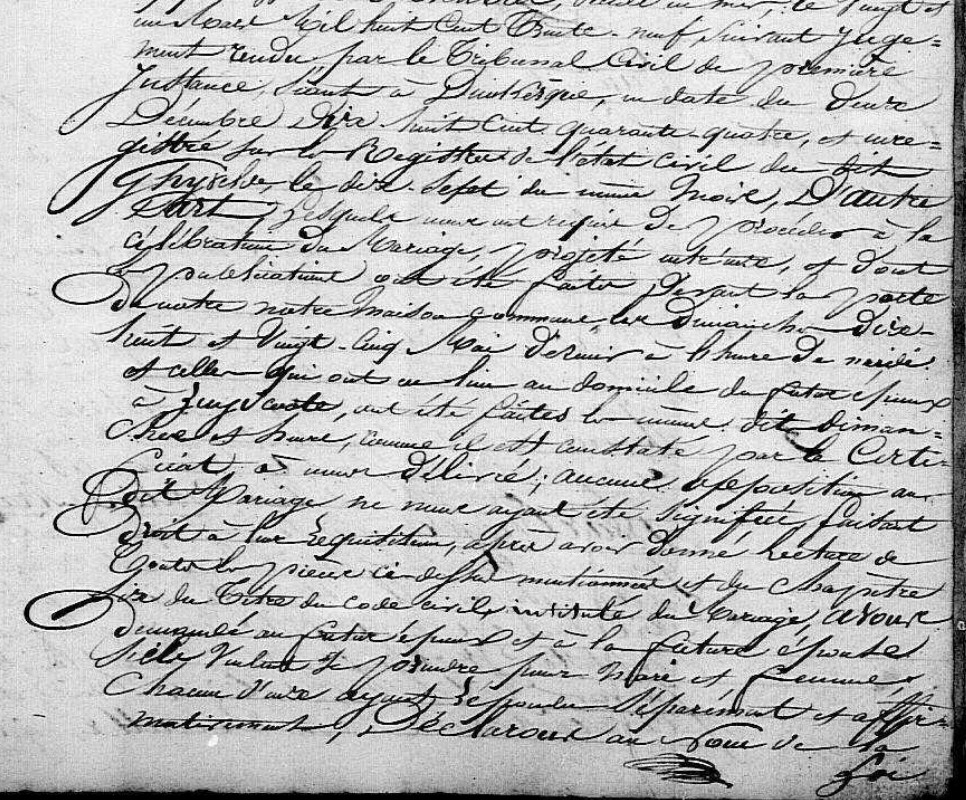 le vingt et
un Mars Mil huit Cent Trente-neuf, suivant Juge=
ment rendu par le Tribunal Civil de première
Instance, séant à Dunkerque, en date du deux
Décembre Dix-huit Cent quarante-quatre, et enre=
gistré sur le Registre de l'état civil du dit
Ghyvelde, le dix-sept du même mois, D'autre
Part; Lesquels nous ont requis de procéder à la
célébration du Mariage, projeté entr'eux, et dont
les publications ont été faites devant la porte
de notre maison commune, les dimanches dix-
huit et Vingt-Cinq Mai dernier à l'heure de midi
et celles qui ont eu lieu au domicile du futur époux
à Zuydcoote, ont été faites les mêmes dits diman=
ches et heure, comme il est constaté par le Certi-
ficat, à nous délivré; aucune opposition au
dit Mariage ne nous ayant été signifiée, faisant
droit à leur réquisition, après avoir donné lecture de
toutes les pièces ci-dessus mentionnées et du chapitre
six du Titre du code civil, intitulé du Mariage, avons
demandé au futur époux et à la future épouse
s'ils veulent se prendre pour Mari et Femme,
Chacun d'eux ayant répondu séparément et affir-
mativement, Déclarons au nom de la
Loi